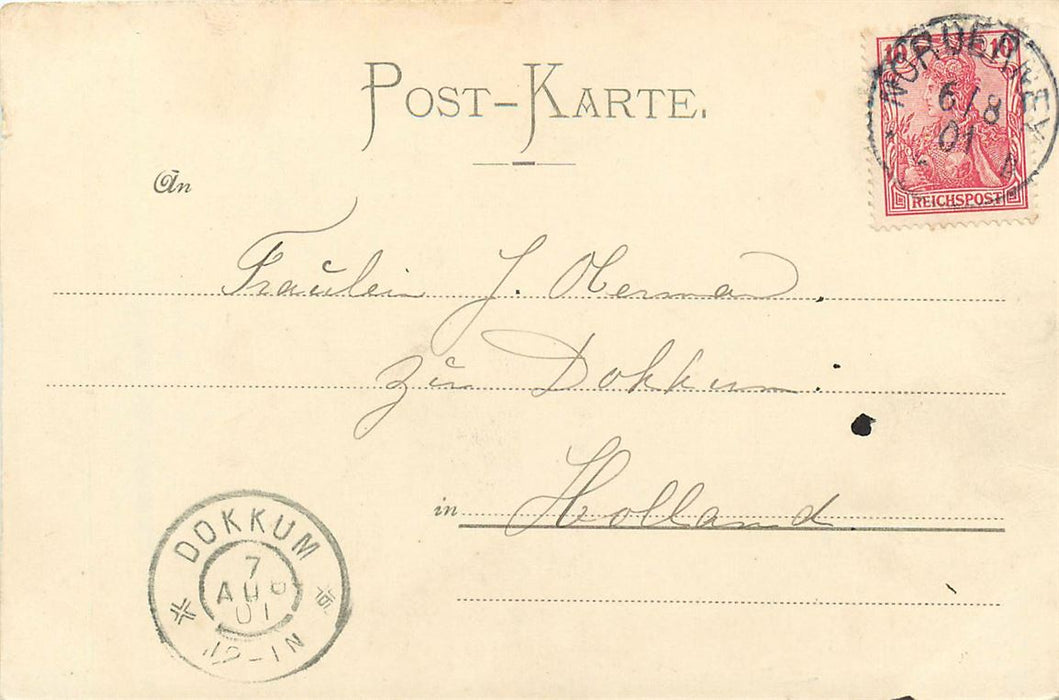 POST-KARTE.
10 10
NORDERNEY
6/8
01
REICHSPOST
An
Fräulein J. Oberman.
zu Dokkum.
in Holland.
DOKKUM
7
AUG
01
-1N